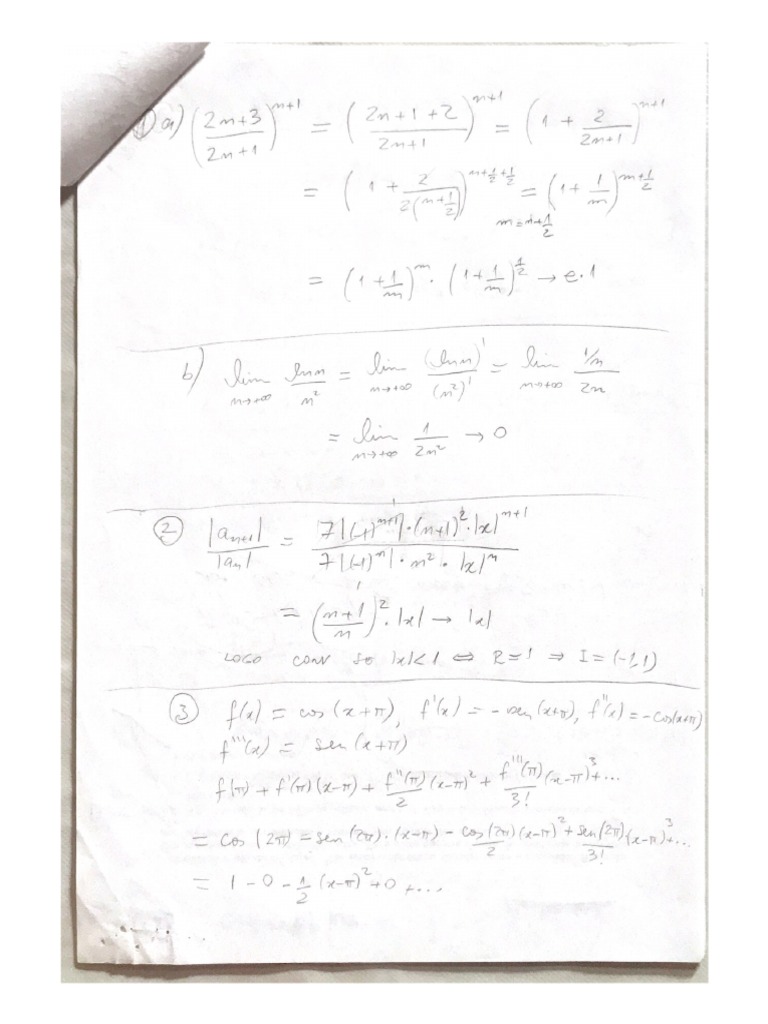 1) a) ((2n+3)/(2n+1))^(n+1) = ((2n+1+2)/(2n+1))^(n+1) = (1 + 2/(2n+1))^(n+1)
= (1 + 2/(2(n+1/2)))^(n+1/2+1/2) = (1 + 1/m)^(m+1/2)
m = n+1/2
= (1 + 1/m)^m · (1 + 1/m)^(1/2) → e·1
b) lim n→+∞ ln n/n² = lim n→+∞ (ln n)'/(n²)' = lim n→+∞ (1/n)/(2n)
= lim n→+∞ 1/(2n²) → 0
2) |a_(n+1)|/|a_n| = (7|(-1)^(n+1)|·(n+1)²·|x|^(n+1))/(7|(-1)^n|·n²·|x|^n)
= ((n+1)/n)²·|x| → |x|
LOGO CONV SE |x|<1 ⇔ R=1 ⇒ I=(-1,1)
3) f(x) = cos(x+π), f'(x) = -sen(x+π), f''(x) = -cos(x+π)
f'''(x) = sen(x+π)
f(π) + f'(π)(x-π) + f''(π)/2 (x-π)² + f'''(π)/3! (x-π)³+...
= cos(2π) - sen(2π)·(x-π) - cos(2π)/2 (x-π)² + sen(2π)/3! (x-π)³+...
= 1 - 0 - 1/2 (x-π)² + 0 + ...